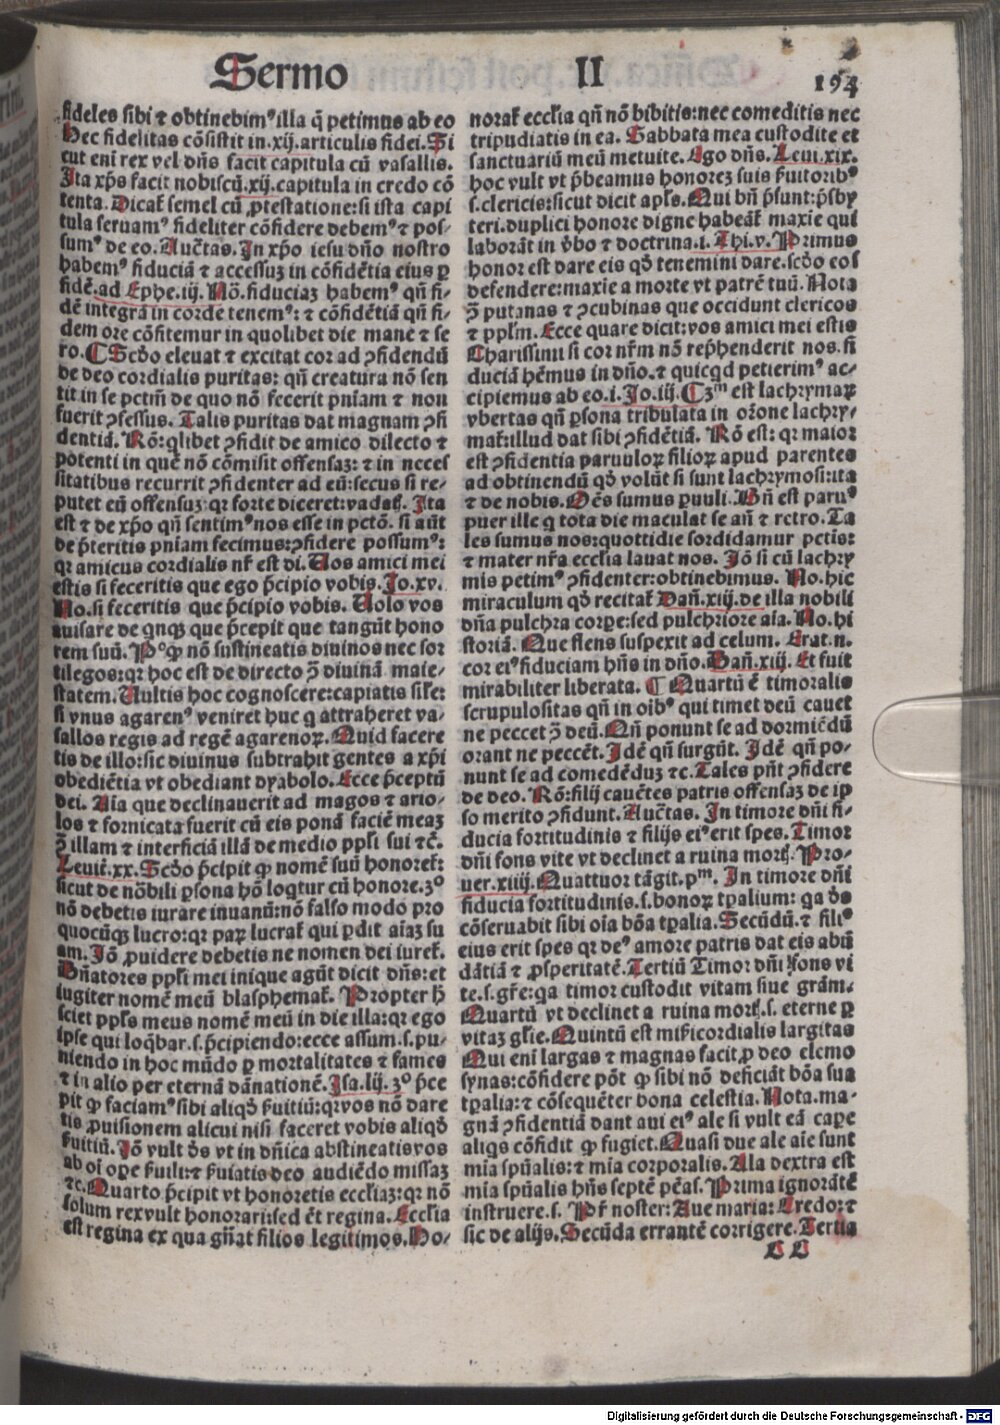 Sermo II 194
fideles sibi ⁊ obtinebimꝰ illa q̄ petimus ab eo
Hec fidelitas cõsistit in .xij. articulis fidei. Si
cut eni rex vel dñs facit capitula cū vasallis.
Ita xp̄s facit nobiscū .xij. capitula in credo cõ
tenta. Dicat̃ semel cū ꝓtestatione: si ista capi
tula seruamꝰ fideliter cõfidere debemꝰ ⁊ pos⸗
sumꝰ de eo. Auctas. In xp̄o iesu dño nostro
habemꝰ fiduciã ⁊ accessuꝫ in cõfidẽtia eius ꝑ
fidẽ. ad Ephe. iij. Nõ. fiduciaꝫ habemꝰ qñ fi⸗
dẽ integrã in corde tenemꝰ: ⁊ cõfidẽtiã qñ fi⸗
dem ore cõfitemur in quolibet die mane ⁊ se
ro. ¶ Scd̃o eleuat ⁊ excitat cor ad ꝯfidendū
de deo cordialis puritas: qñ creatura nõ sen
tit in se pctm̃ de quo nõ fecerit pniam ⁊ non
fuerit ꝯfessus. Talis puritas dat magnam ꝯfi
dentiã. Rõ: qlibet ꝯfidit de amico dilecto ⁊
potenti in quẽ nõ cõmisit offensaꝫ: ⁊ in neces
sitatibus recurrit ꝯfidenter ad eū: secus si re⸗
putet eū offensuꝫ: qꝛ forte diceret: vadat̃. Ita
est ⁊ de xp̄o qñ sentimꝰ nos esse in pctõ. si aūt
de p̄teritis pniam fecimus: ꝯfidere possumꝰ:
qꝛ amicus cordialis nr̃ est di. Uos amici mei
estis si feceritis que ego p̄cipio vobis. Jo. xv.
No. si feceritis que p̄cipio vobis. Uolo vos
auisare de qnqꝫ que p̄cepit que tangūt hono
rem suū. Pº ꝙ nõ sustineatis diuinos nec sor
tilegos: qꝛ hoc est de directo ꝯ̃ diuinã maie⸗
statem. Uultis hoc cognoscere: capiatis sile:
si vnus agarenꝰ veniret huc q attraheret va⸗
sallos regis ad regẽ agarenoꝝ. Quid facere
tis de illo: sic diuinus subtrahit gentes a xp̄i
obediẽtia vt obediant dyabolo. Ecce p̄ceptū
dei. Aia que declinauerit ad magos ⁊ ario⸗
los ⁊ fornicata fuerit cū eis ponã faciẽ meaꝫ
ꝯ̃ illam ⁊ interficiã illã de medio ppli sui ⁊c̃.
Leuit̃. xx. Scd̃o p̄cipit ꝙ nomẽ suū honoret̃:
sicut de nõbili ꝑsona hõ loqtur cū honore. 3º
nõ debetis iurare inuanū: nõ falso modo pro
quocūqꝫ lucro: qꝛ paꝝ lucrat̃ qui ꝑdit aiaꝫ su
am. Jõ ꝓuidere debetis ne nomen dei iuret̃.
Dñatores ppli mei inique agūt dicit dñs: et
iugiter nomẽ meū blasphemat̃. Propter h̃
sciet ppls meus nomẽ meū in die illa: qꝛ ego
ipse qui loq̄bar .s. p̄cipiendo: ecce assum .s. pu⸗
niendo in hoc mūdo ꝑ mortalitates ⁊ fames
⁊ in alio per eternã dãnationẽ. Isa. lij. 3º p̄ce
pit ꝙ faciamꝰ sibi aliqd̃ ẜuitiū: qꝛ vos nõ dare
tis ꝓuisionem alicui nisi faceret vobis aliqd̃
ẜuitiū. Jõ vult dꝰs vt in dñica abstineatis vos
ab oi̅ oꝑe ẜuili: ⁊ ẜuiatis deo audiẽdo missaꝫ
⁊c. Quarto p̄cipit vt honoretis eccliaꝫ: qꝛ nõ
solum rex vult honorari: sed ẽt regina. Ecclia
est regina ex qua gñat filios legitimos. Ho⸗
norat̃ ecclia qñ nõ bibitis: nec comeditis nec
tripudiatis in ea. Sabbata mea custodite et
sanctuariū meū metuite. Ego dñs. Leui. xix.
hoc vult vt p̄beamus honoreꝫ suis ẜuitoribꝰ
.s. clericis: sicut dicit apls. Qui bñ p̄sunt: p̄sby
teri. duplici honore digne habeãt̃ maxie qui
laborãt in v̓bo ⁊ doctrina. i. Thi. v. Primus
honor est dare eis qd̃ tenemini dare. scd̃o eos
defendere: maxie a morte vt patrẽ tuū. Nota
ꝯ̃ putanas ⁊ ꝯcubinas que occidunt clericos
⁊ pplm̃. Ecce quare dicit: vos amici mei estis
Charissimi si cor nr̃m nõ rep̄henderit nos. fi
duciã hẽmus in dño. ⁊ quicqd petierimꝰ ac⸗
cipiemus ab eo. i. Jo. iij. ¶ 3ᵐ est lachrymaꝝ
vbertas qñ ꝑsona tribulata in or̃one lachry⸗
mat̃: illud dat sibi ꝯfidẽtiã. Rõ est: qꝛ maior
est ꝯfidentia paruuloꝝ filioꝝ apud parentes
ad obtinendū qd̃ volūt si sunt lachrymosi: ita
⁊ de nobis. Oẽs sumus ꝑuuli. Bñ est paruꝰ
puer ille q tota die maculat se añ ⁊ retro. Ta
les sumus nos: quottidie sordidamur pctis:
⁊ mater nr̃a ecclia lauat nos. Jõ si cū lachry
mis petimꝰ ꝯfidenter: obtinebimus. No. hic
miraculum qd̃ recitat̃ Dañ. xiij. de illa nobili
dña pulchra corꝑe: sed pulchriore aia. No. hi
storiã. Que flens suspexit ad celum. Erat. n.
cor eiꝰ fiduciam hñs in dño. Dañ. xiij. Et fuit
mirabiliter liberata. ¶ Quartū ẽ timoralis
scrupulositas qñ in oibꝰ qui timet deū cauet
ne peccet ꝯ̃ deū. Qñ ponunt se ad dormiẽdū
orant ne peccẽt. Idẽ qñ surgūt. Idẽ qñ po⸗
nunt se ad comedẽduꝫ ⁊c. Tales pñt ꝯfidere
de deo. Rõ: filij cauẽtes patris offensaꝫ de ip
so merito ꝯfidunt. Auctas. In timore dñi fi⸗
ducia fortitudinis ⁊ filijs eiꝰ erit spes. Timor
dñi fons vite vt declinet a ruina mort̃. Pro⸗
uer. xiiij. Quattuor tãgit. pᵐ. In timore dñi
fiducia fortitudinis .s. bonoꝝ tp̃alium: qa dꝰs
cõseruabit sibi oia bõa tp̃alia. Secūdū. ⁊ filiꝰ
eius erit spes qꝛ deꝰ amore patris dat eis abū
dãtiã ⁊ ꝓsperitatẽ. Tertiū Timor dñi fons vi
te .s. gr̃e: qa timor custodit vitam siue gr̃am.
Quartū vt declinet a ruina mort̃ .s. eterne ꝑ
vitaꝫ gl̃ie. Quintū est mi̅icordialis largitas
Qui eni largas ⁊ magnas facit ꝓ deo elemo
synas: cõfidere põt ꝙ sibi nõ deficiãt bõa sua
tp̃alia: ⁊ cõsequẽter bona celestia. Nota. ma⸗
gnã ꝯfidentiã dant aui eiꝰ ale si vult eã caꝑe
aliqs cõfidit ꝙ fugiet. Quasi due ale aie sunt
mia spũalis: ⁊ mia corporalis. Ala dextra est
mia spũalis hñs septẽ pẽas. Prima ignorãtẽ
instruere .s. Pr̃ noster: Aue maria: Credo: ⁊
sic de alijs. Secūda errantẽ corrigere. Tertia
L L
Digitalisierung gefördert durch die Deutsche Forschungsgemeinschaft - DFG